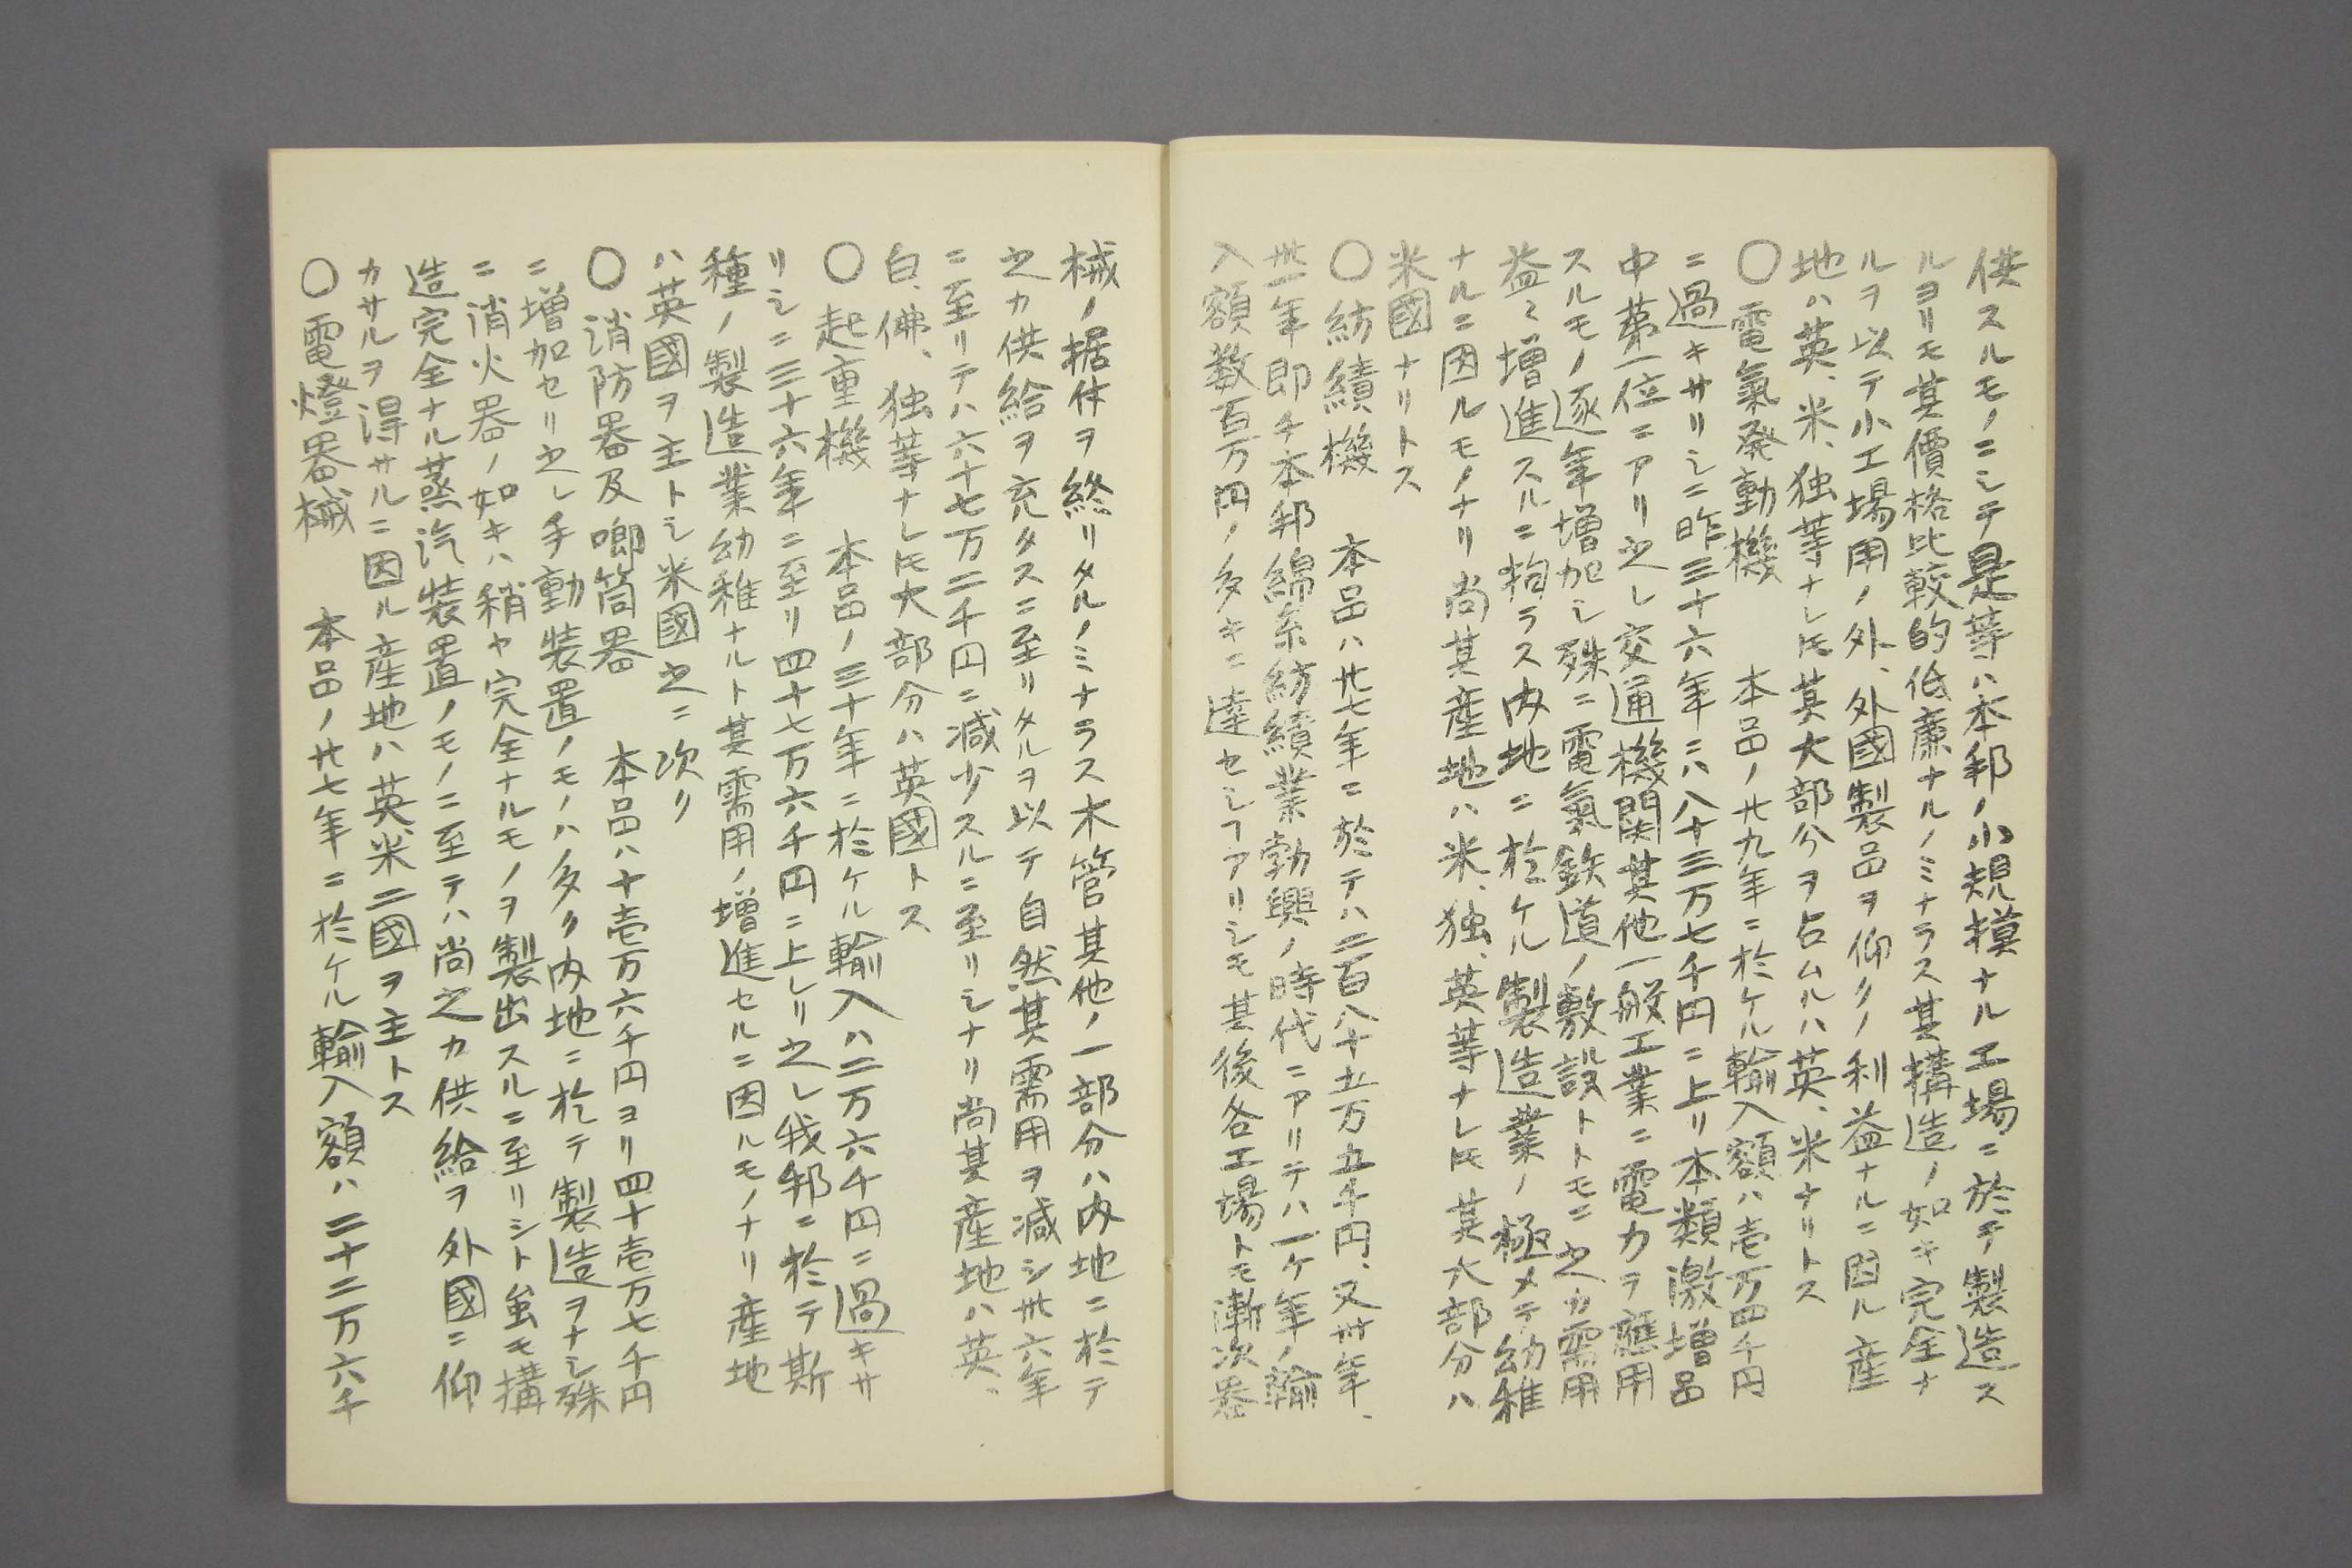 供スルモノニシテ是等ハ本邦ノ小規摸ナル工場ニ於テ製造ス
ルヨリモ其價格比較的低廉ナルノミナラス其構造ノ如キ完全ナ
ルヲ以テ小工場用ノ外、外國製品ヲ仰クノ利益ナルニ因ル産
地ハ英、米、独等ナレ𪜈其大部分ヲ占ムルハ英、米ナリトス
〇電氣発動機　本品ノ廿九年ニ於ケル輸入額ハ壱万四千円
ニ過キサリシニ昨三十六年ニハ八十三万七千円ニ上リ本類激増品
中第一位ニアリ之レ交通機関其他一般工業ニ電力ヲ應用
スルモノ逐年増加シ殊ニ電氣鉄道ノ敷設トトモニ之カ需用
益〻増進スルニ拘ラス内地ニ於ケル製造業ノ極メテ幼稚
ナルニ因ルモノナリ尚其産地ハ米、独、英等ナレ𪜈其大部分ハ
米國ナリトス
〇紡績機　本品ハ廿七年ニ於テハ二百八十五万五千円、又卅年、
卅一年即チ本邦綿糸紡績業勃興ノ時代ニアリテハ一ケ年ノ輸
入額数百万円ノ多キニ達セシヿアリシモ其後各工場トモ漸次器
械ノ据付ヲ終リタルノミナラス木管其他ノ一部分ハ内地ニ於テ
之カ供給ヲ充タスニ至リタルヲ以テ自然其需用ヲ減シ卅六年
ニ至リテハ六十七万二千円ニ減少スルニ至リシナリ尚其産地ハ英、
白、佛、独等ナレ𪜈大部分ハ英國トス
〇起重機　本品ノ三十年ニ於ケル輸入ハ二万六千円ニ過キサ
リシニ三十六年ニ至リ四十七万六千円ニ上レリ之レ我邦ニ於テ斯
種ノ製造業幼稚ナルト其需用ノ増進セルニ因ルモノナリ産地
ハ英國ヲ主トシ米國之ニ次ク
〇消防器及喞筒器　本品ハ十壱万六千円ヨリ四十壱万七千円
ニ増加セリ之レ手動装置ノモノハ多ク内地ニ於テ製造ヲナシ殊
ニ消火器ノ如キハ稍ヤ完全ナルモノヲ製出スルニ至リシト虽モ構
造完全ナル蒸汽装置ノモノニ至テハ尚之カ供給ヲ外國ニ仰
カサルヲ得サルニ因ル産地ハ英米二國ヲ主トス
〇電燈器械　本品ノ廿七年ニ於ケル輸入額ハ二十二万六千